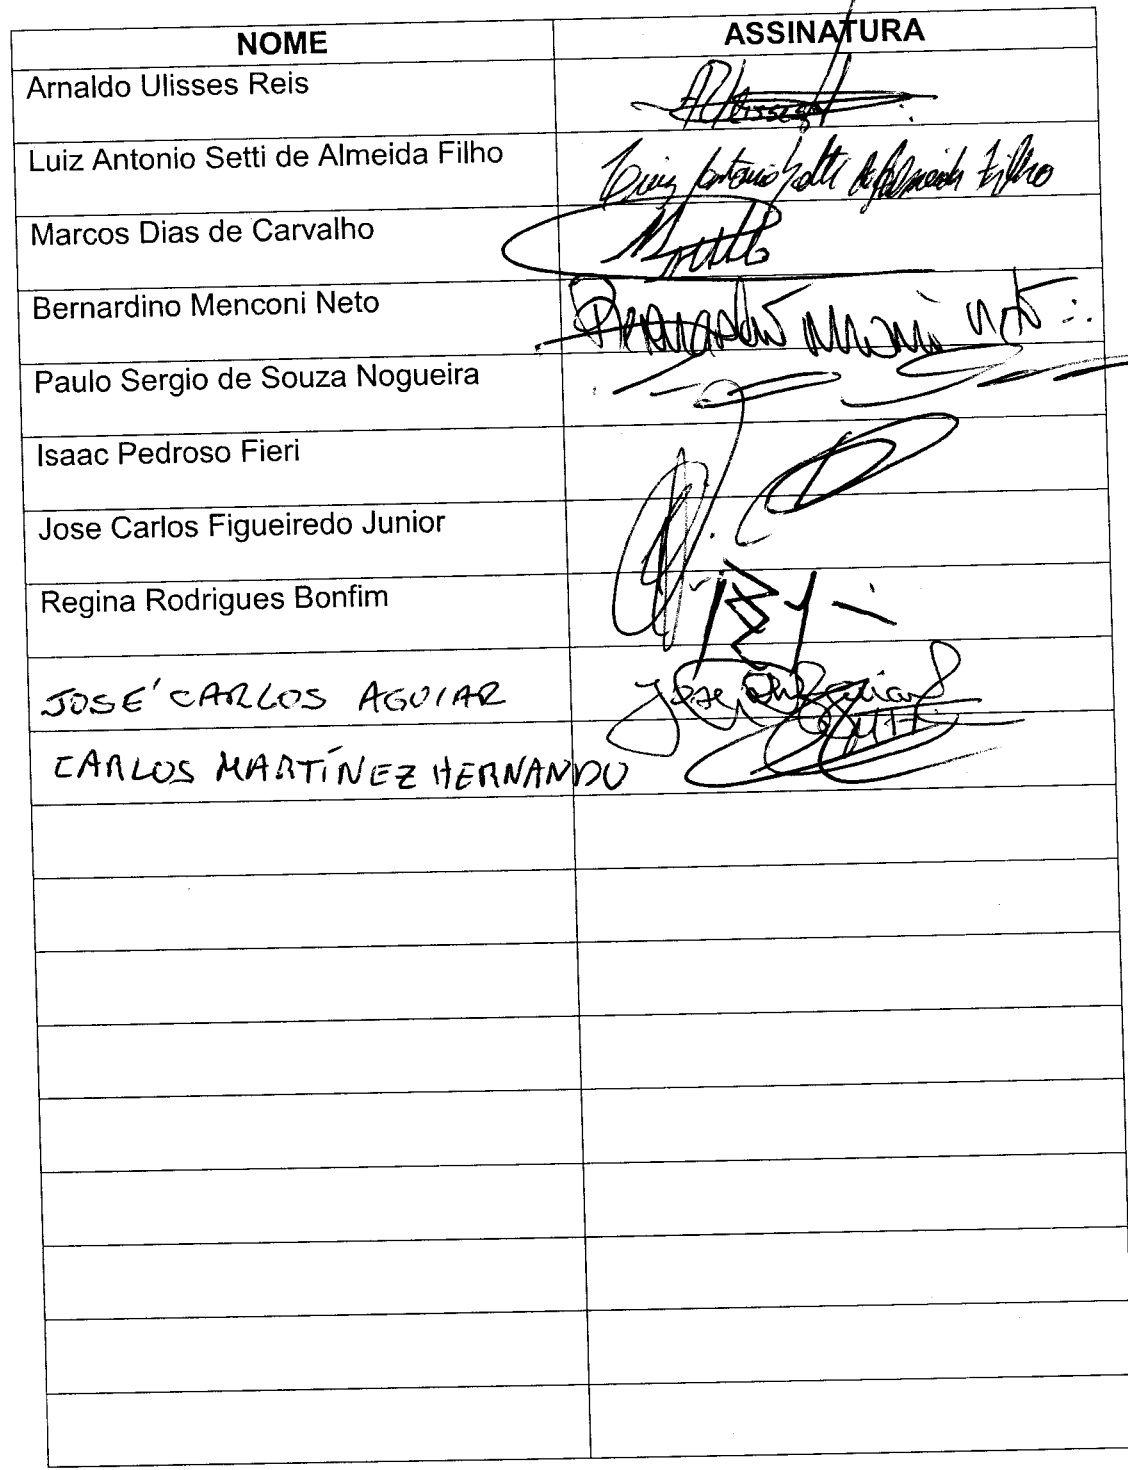 NOME ASSINATURA
Arnaldo Ulisses Reis
Luiz Antonio Setti de Almeida Filho Luiz Antonio Setti de Almeida Filho
Marcos Dias de Carvalho
Bernardino Menconi Neto
Paulo Sergio de Souza Nogueira
Isaac Pedroso Fieri
Jose Carlos Figueiredo Junior
Regina Rodrigues Bonfim
JOSÉ CARLOS AGUIAR
CARLOS MARTÍNEZ HERNANDO